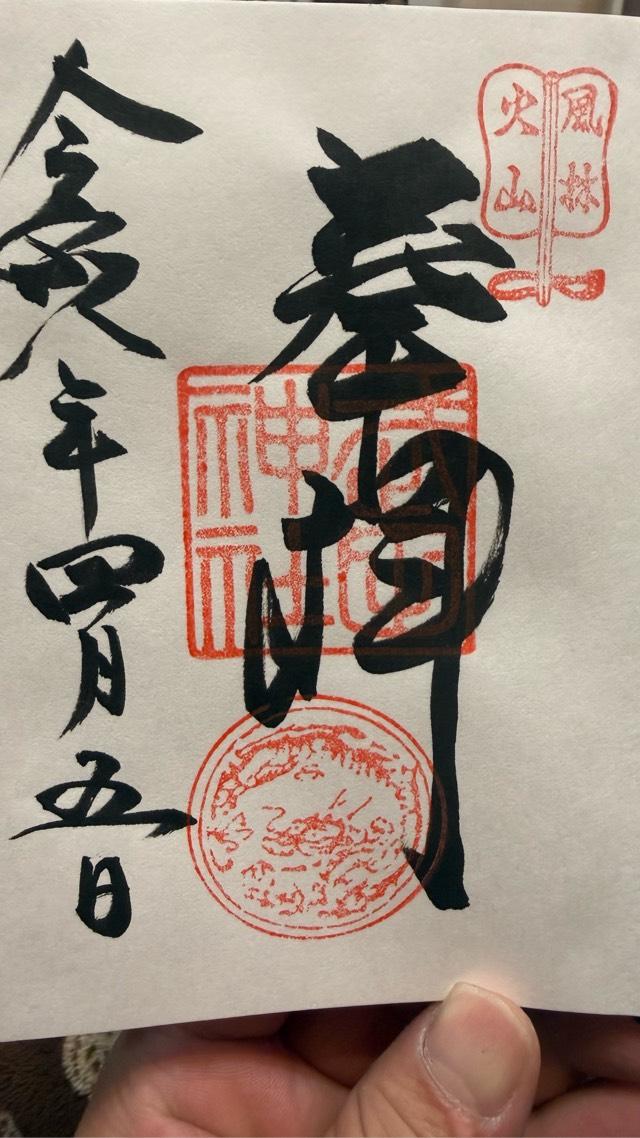 風林
火山
奉拝
武田
神社
令和八年四月五日